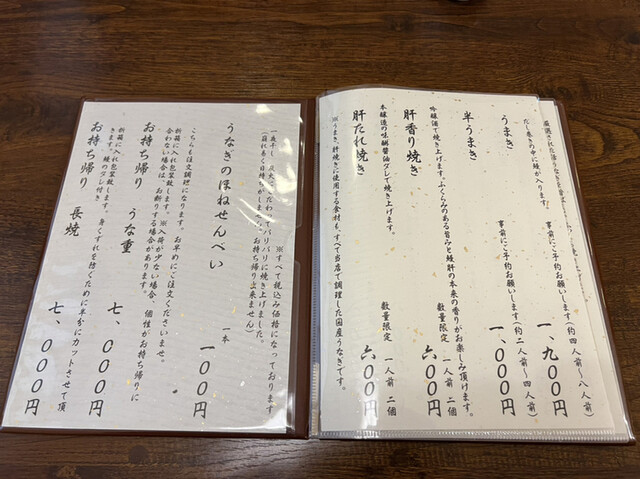 うまき 事前にご予約お願いします(約四人前〜八人前)
一、九〇〇円
だし巻の中に鰻が入ります。
半うまき 事前にご予約お願いします(約二人前〜四人前)
一、〇〇〇円
吟醸酒で焼き上げます。ふくらみのある旨みと鰻肝の本来の香りがお楽しみ頂けます。
肝香り焼き 数量限定 一人前 二個
六〇〇円
本醸造の味 醤油ダレで焼き上げます。
肝たれ焼き 数量限定 一人前 二個
六〇〇円
※うまき・肝焼きに使用する食材も、すべて当店で調理した国産うなぎです。
※すべて税込み価格になっております
一夜干し、炭火にこだわってパリパリに焼き上げました。
お持ち帰り出来ません)
うなぎのほねせんべい 一本 一〇〇円
こちらも注文調理になります。お早めにご注文くださいませ。
折箱に入れ包装致します。※入荷が少ない場合、個性がお持ち帰りに
合わない場合は、お断りする場合があります。
お持ち帰り うな重 七、〇〇〇円
折箱に入れ包装致します。身くずれを防ぐために半分にカットさせて頂
きます。鰻のタレ付き
お持ち帰り 長焼 七、〇〇〇円